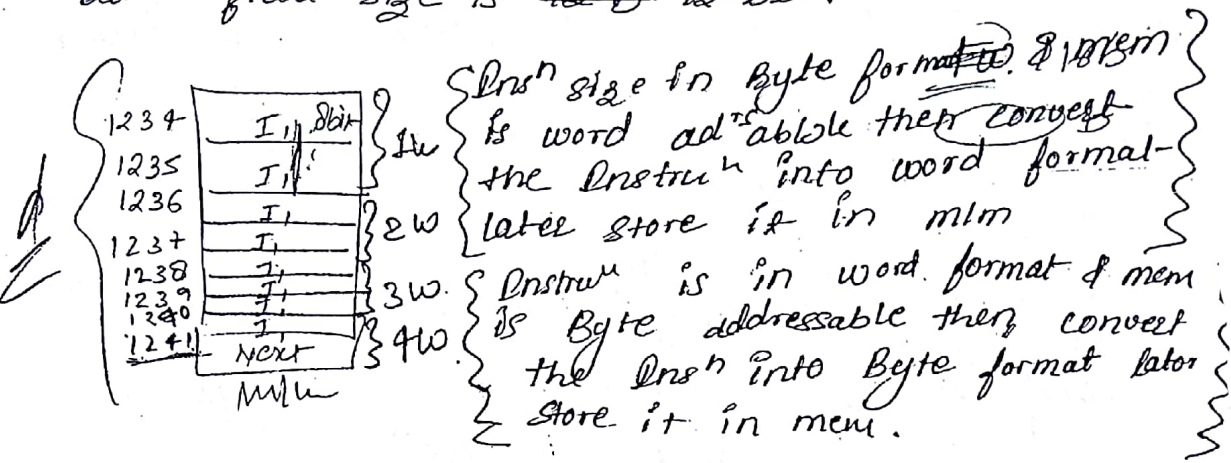 field size is
1234 I1 8bit 1w
1235 I1
1236 I1 2w
1237 I1
1238 I1 3w.
1239 I1
1240 I1 4w
1241 I1
Next
Insn size in Byte format & mem
is word ad able then convert
the Instrun into word format
later store it in m/m
Instrun is in word format & mem
is Byte addressable then convert
the Insn into Byte format lator
store it in mem.